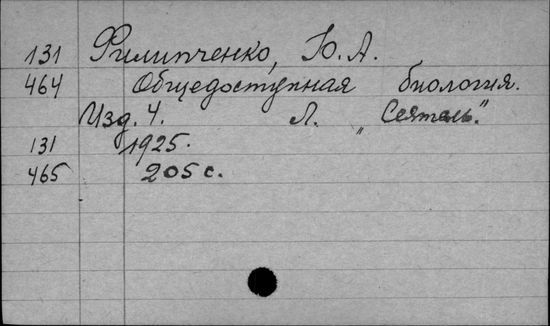 131 Филипченко, Ю. А.
464 Общедоступная биология.
Изд. 4. Л. „Сеятель."
131 1925.
465 205 с.